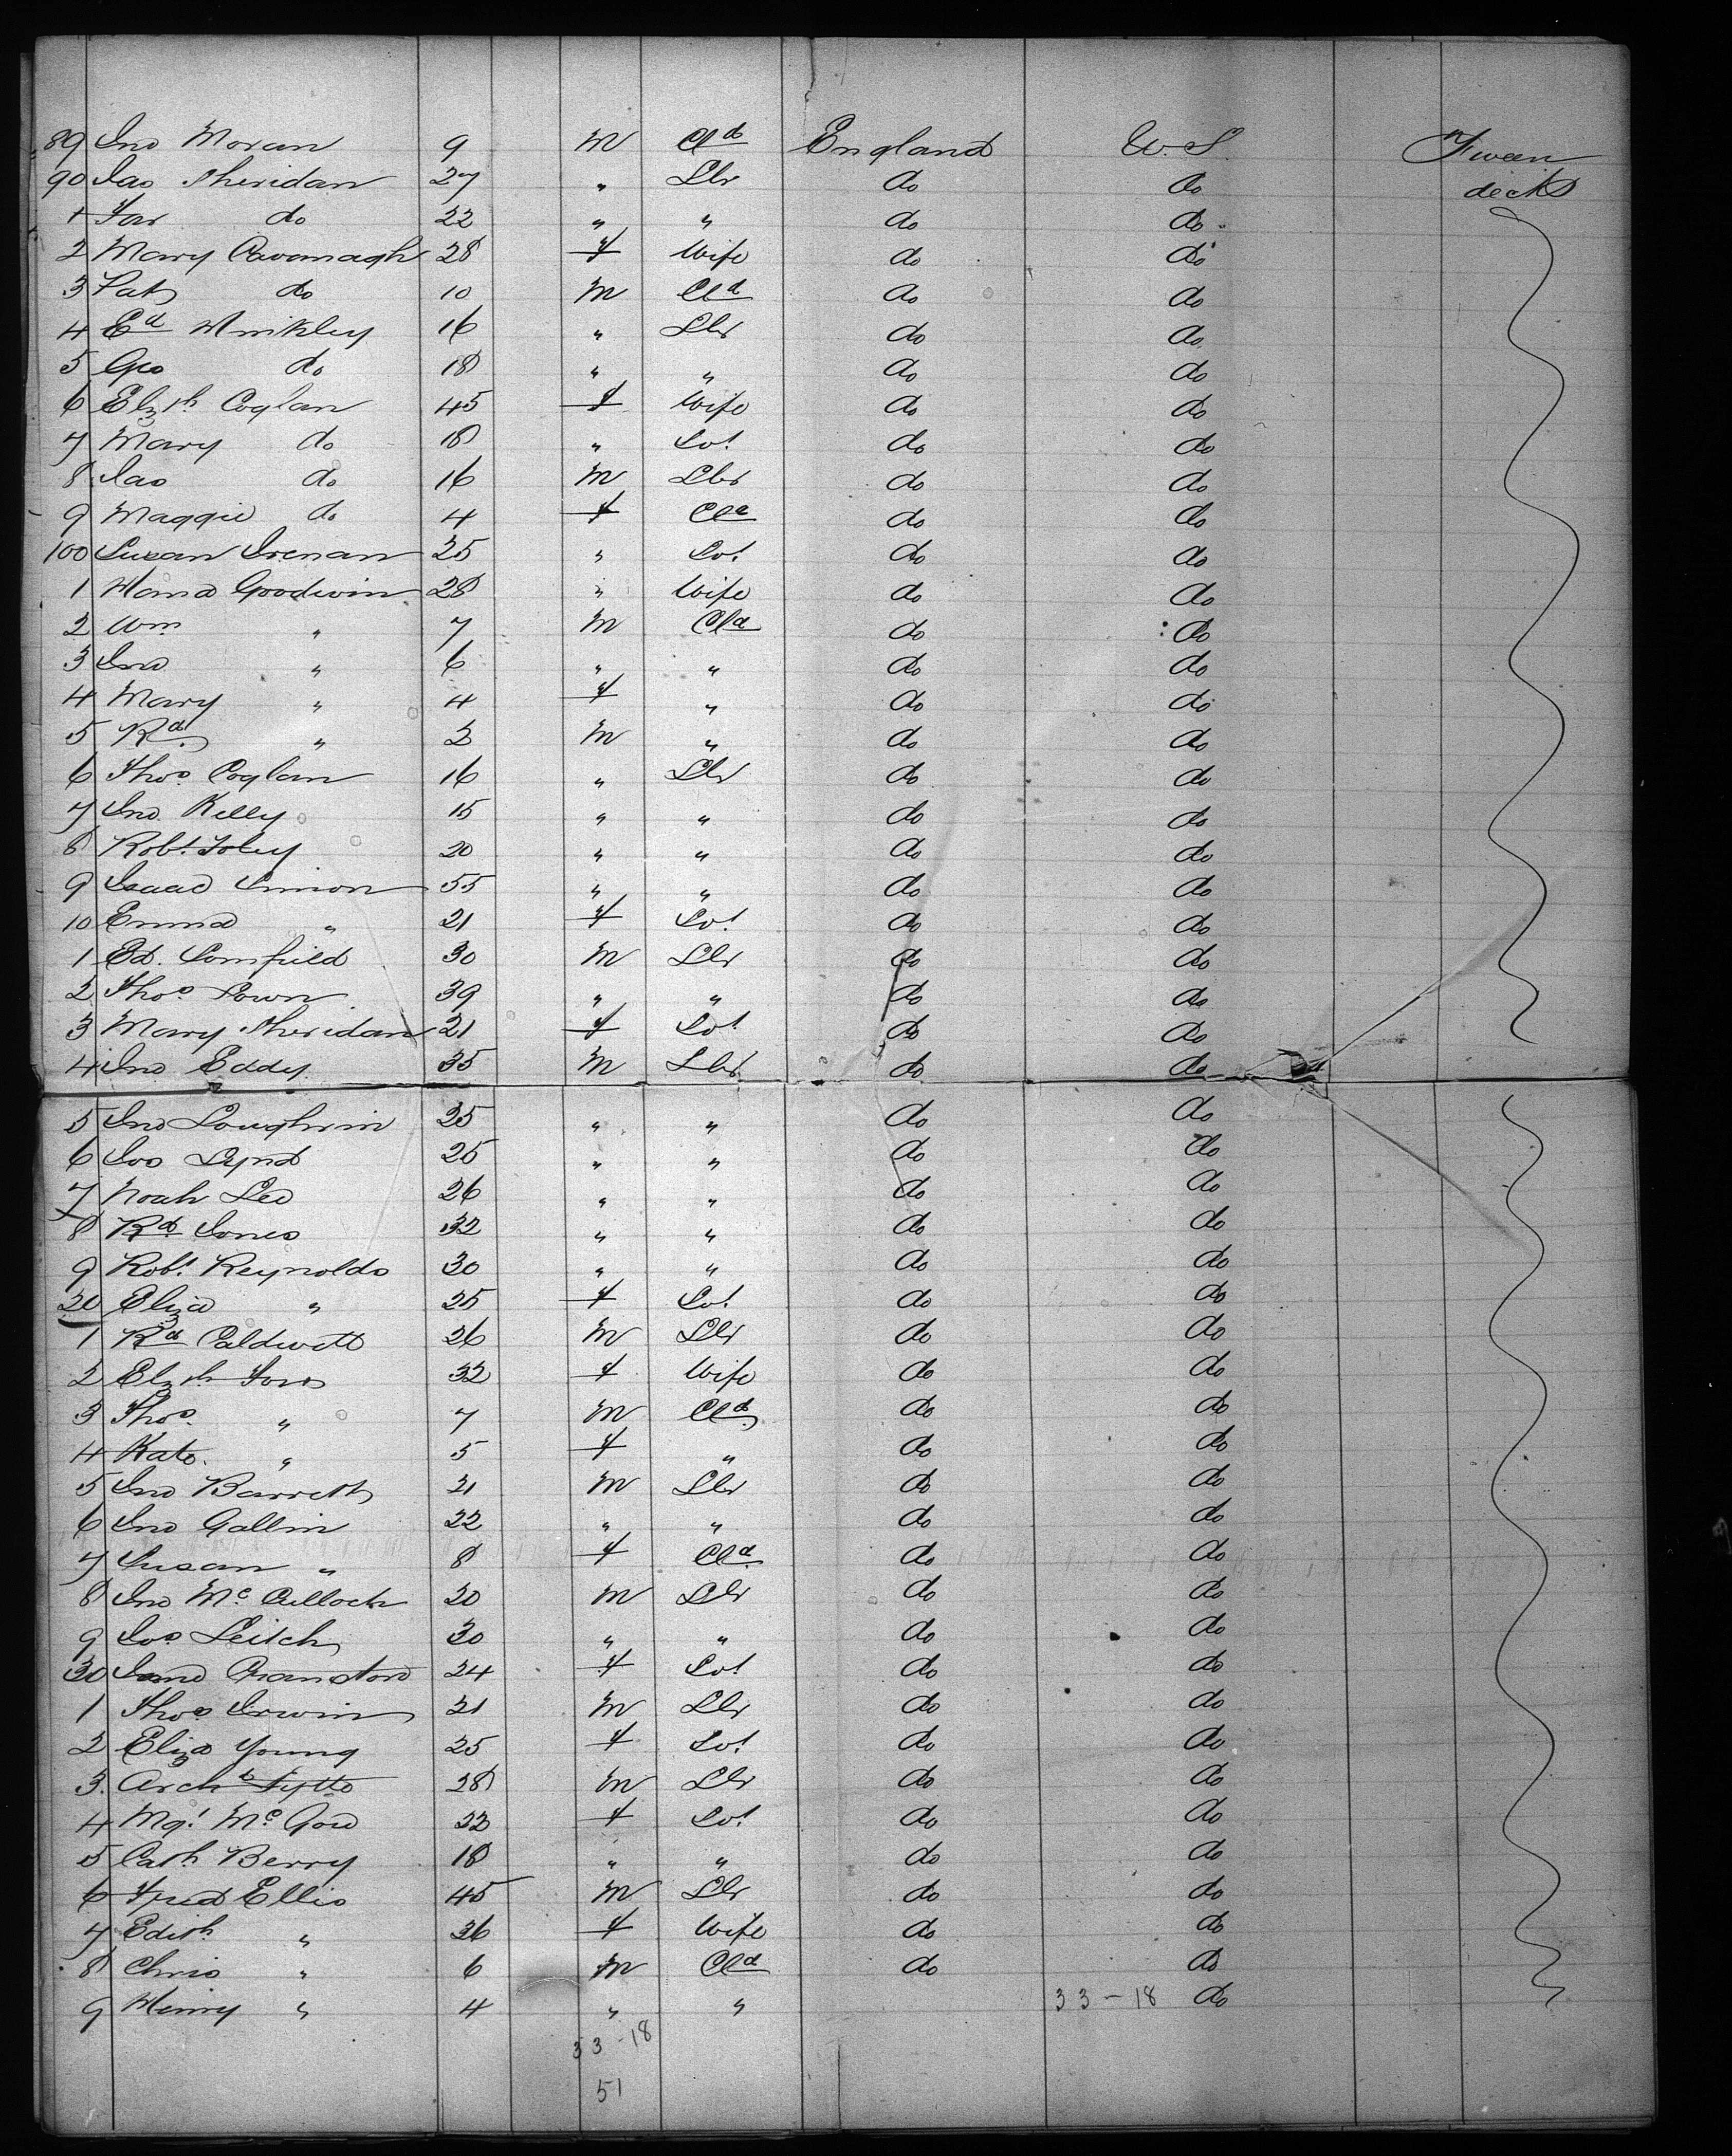 89 Jno Moran 9 M Cld England U.S. Tween
90 Jas Sheridan 27 " Lbr do do decks
1 Far do 22 " " do do
2 Mary Cavanagh 28 f Wife do do
3 Pat do 10 M Cld do do
4 Ed Winkley 16 " Lbr do do
5 Geo do 18 " " do do
6 Elzth Coglan 45 f Wife do do
7 Mary do 18 " Svt do do
8 Jas do 16 M Lbr do do
9 Maggie do 4 f Cld do do
100 Susan 25 " Svt do do
1 Goodwin 28 " Wife do do
2 Wm " 7 M Cld do do
3 Jno " 6 " " do do
4 Mary " 4 f " do do
5 Rd " 2 M " do do
6 Thos Coglan 16 " Lbr do do
7 Jno Kelly 15 " " do do
8 Robt Foley 20 " " do do
9 Isaac Simon 55 " " do do
10 Emma " 21 f Svt do do
1 Ed. 30 M Lbr do do
2 Thos 39 " " do do
3 Mary Sheridan 21 f Svt do do
4 Jno Eddy 35 M Lbr do do
5 Jno Loughrin 25 " " do do
6 Jos Lynd 25 " " do do
7 Noah Lee 26 " " do do
8 Rd Jones 32 " " do do
9 Robt Reynolds 30 " " do do
20 Eliza " 25 f Svt do do
1 Rd Caldwell 26 M Lbr do do
2 Elzth 32 f Wife do do
3 Thos " 7 M Cld do do
4 Kate " 5 f " do do
5 Jno Barrett 21 M Lbr do do
6 Jno Gallin 22 " " do do
7 Susan " 8 f Cld do do
8 Jno McCulloch 20 M Lbr do do
9 Jos Leitch 30 " " do do
30 Jane 24 f Svt do do
1 Thos Irwin 21 M Lbr do do
2 Eliza Young 25 f Svt do do
3 Archd 28 M Lbr do do
4 Mgt 22 f Svt do do
5 Cath Berry 18 " " do do
6 Fred Ellis 45 M Lbr do do
7 Edith " 36 f Wife do do
8 Chris " 6 M Cld do do
9 Henry " 4 " " 33-18 do
33-18
51